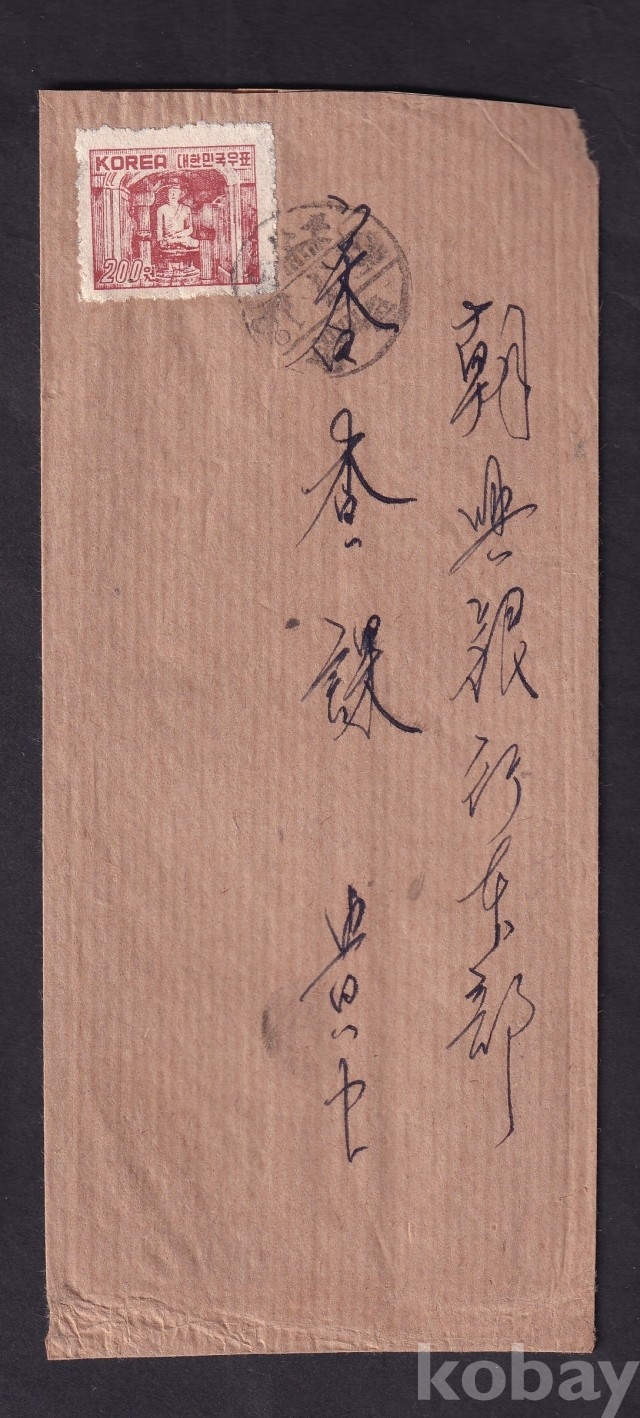 KOREA 대한민국우표
200원
朝興銀行本部
審査課 貴中
kobay